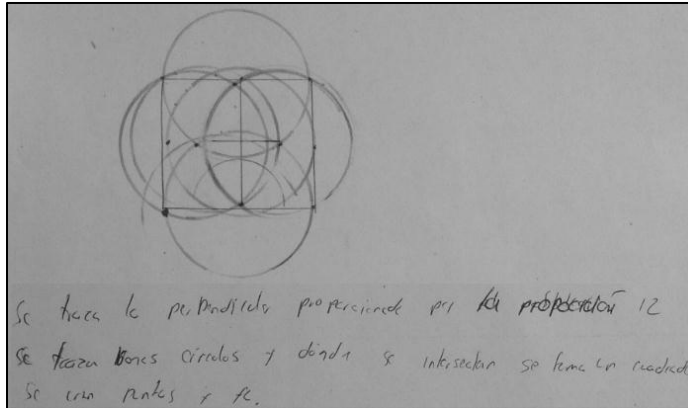 Se traza la perpendicular proporcionada por la proposición 12
Se trazan círculos y donde se intersectan se forma un cuadrado
Se unen puntos y